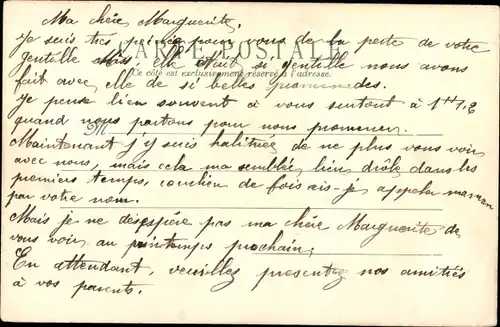 Ma chère Marguerite,
Je suis très peinée pour vous de la perte de votre
CARTE POSTALE
gentille Miss, elle était si gentille nous avons
Ce côté est exclusivement réservé à l'adresse.
fait avec elle de si belles promenades.
Je pense bien souvent à vous surtout à 1 ½
quand nous partons pour nous promener.
Maintenant j'y suis habituée de ne plus vous voir
avec nous, mais cela ma semblée bien drôle dans les
premiers temps, combien de fois ais-je appeler maman
par votre nom.
Mais je ne désespère pas ma chère Marguerite de
vous voir au printemps prochain;
En attendant, veuillez presentez nos amitiés
à vos parents.